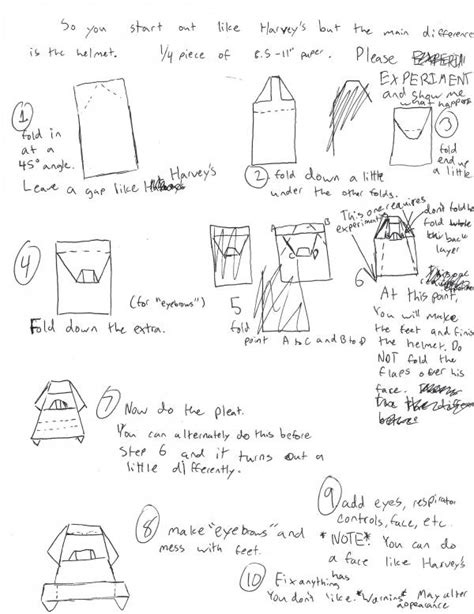 So you start out like Harvey's but the main difference
is the helmet. 1/4 piece of 8.5-11" paper. Please
EXPERIMENT
and show me
what happens
1
fold in
at a
45° angle.
Leave a gap like Harvey's
2 fold down a little
under the other folds.
3
fold
end up
a little
4
(for "eyebows")
Fold down the extra.
A B
C D
5
fold
point A to C and B to D
This one requires
experiment
don't fold the
back
layer
6
At this point,
You will make
the feet and finish
the helmet. Do
NOT fold the
flaps over his
face.
7 Now do the pleat.
You can alternately do this before
step 6 and it turns out a
little differently.
8 make "eyebows" and
mess with feet.
9 add eyes, respirator
controls, face, etc.
*NOTE* You can do
a face like Harvey's
has
10 Fix anything
You don't like. *Warning* May alter
appearance